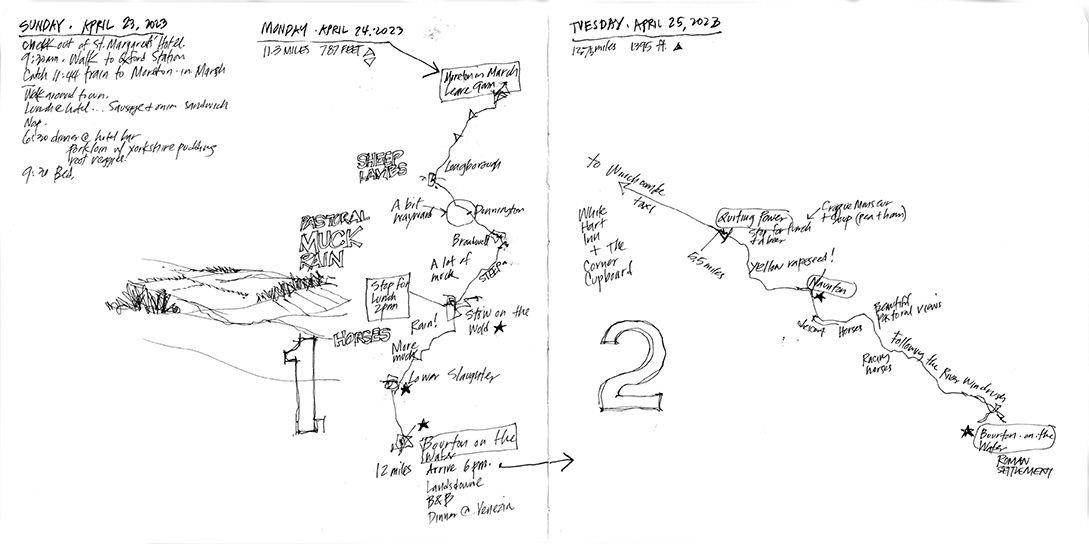 SUNDAY · APRIL 23, 2023
Check out of St. Margaret's Hotel
9:30am. Walk to Oxford Station
Catch 11:44 train to Moreton-in Marsh
Walk around town.
Lunch @ hotel... Sausage + onion sandwich
Nap.
6:30 dinner @ hotel bar
Pork loin w/ yorkshire pudding
root veggies.
9:30 Bed.
MONDAY · APRIL 24 · 2023
11.3 MILES 787 FEET
Moreton in Marsh
Leave 9am
Longborough
SHEEP
LAMBS
A bit
wayward
Donnington
Broadwell
PASTORAL
MUCK
RAIN
A lot of
muck
STEEP
Stop for
Lunch
2pm
Rain!
Stow on the
Wold
HORSES
More
muck
1
Lower Slaughter
12 miles
Bourton on the
Water
Arrive 6pm.
Landsdowne
B&B
Dinner @ Venezia
TUESDAY · APRIL 25, 2023
miles 1395 ft.
To Winchcombe
taxi
White
Hart
Inn
+ The
Corner
Cupboard
Guiting Power
Stop for lunch
+ a beer
Croque Monsieur
+ Soup (pea + ham)
6.5 miles
Yellow rapeseed!
Naunton
Horses
Beautiful
pastoral views
Racing
horses
Following the River Windrush
2
Bourton-on-the
Water
ROMAN
SETTLEMENT